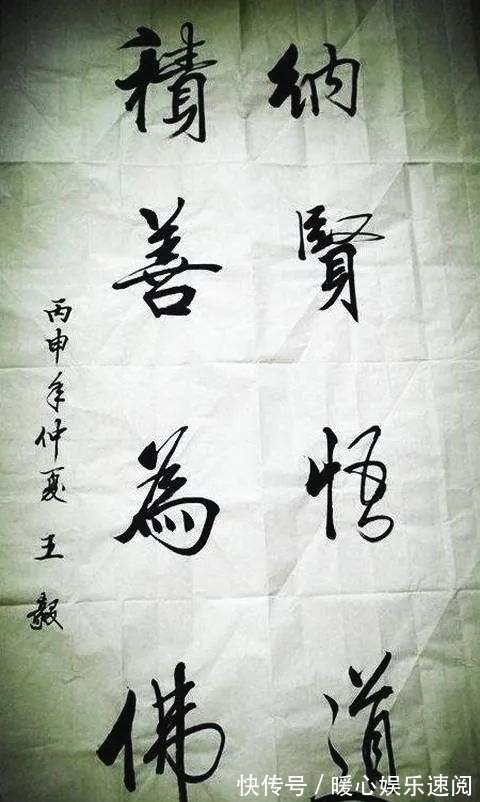 納賢悟道
積善為佛
丙申年仲夏 王毅
快传号/暖心娱乐速阅